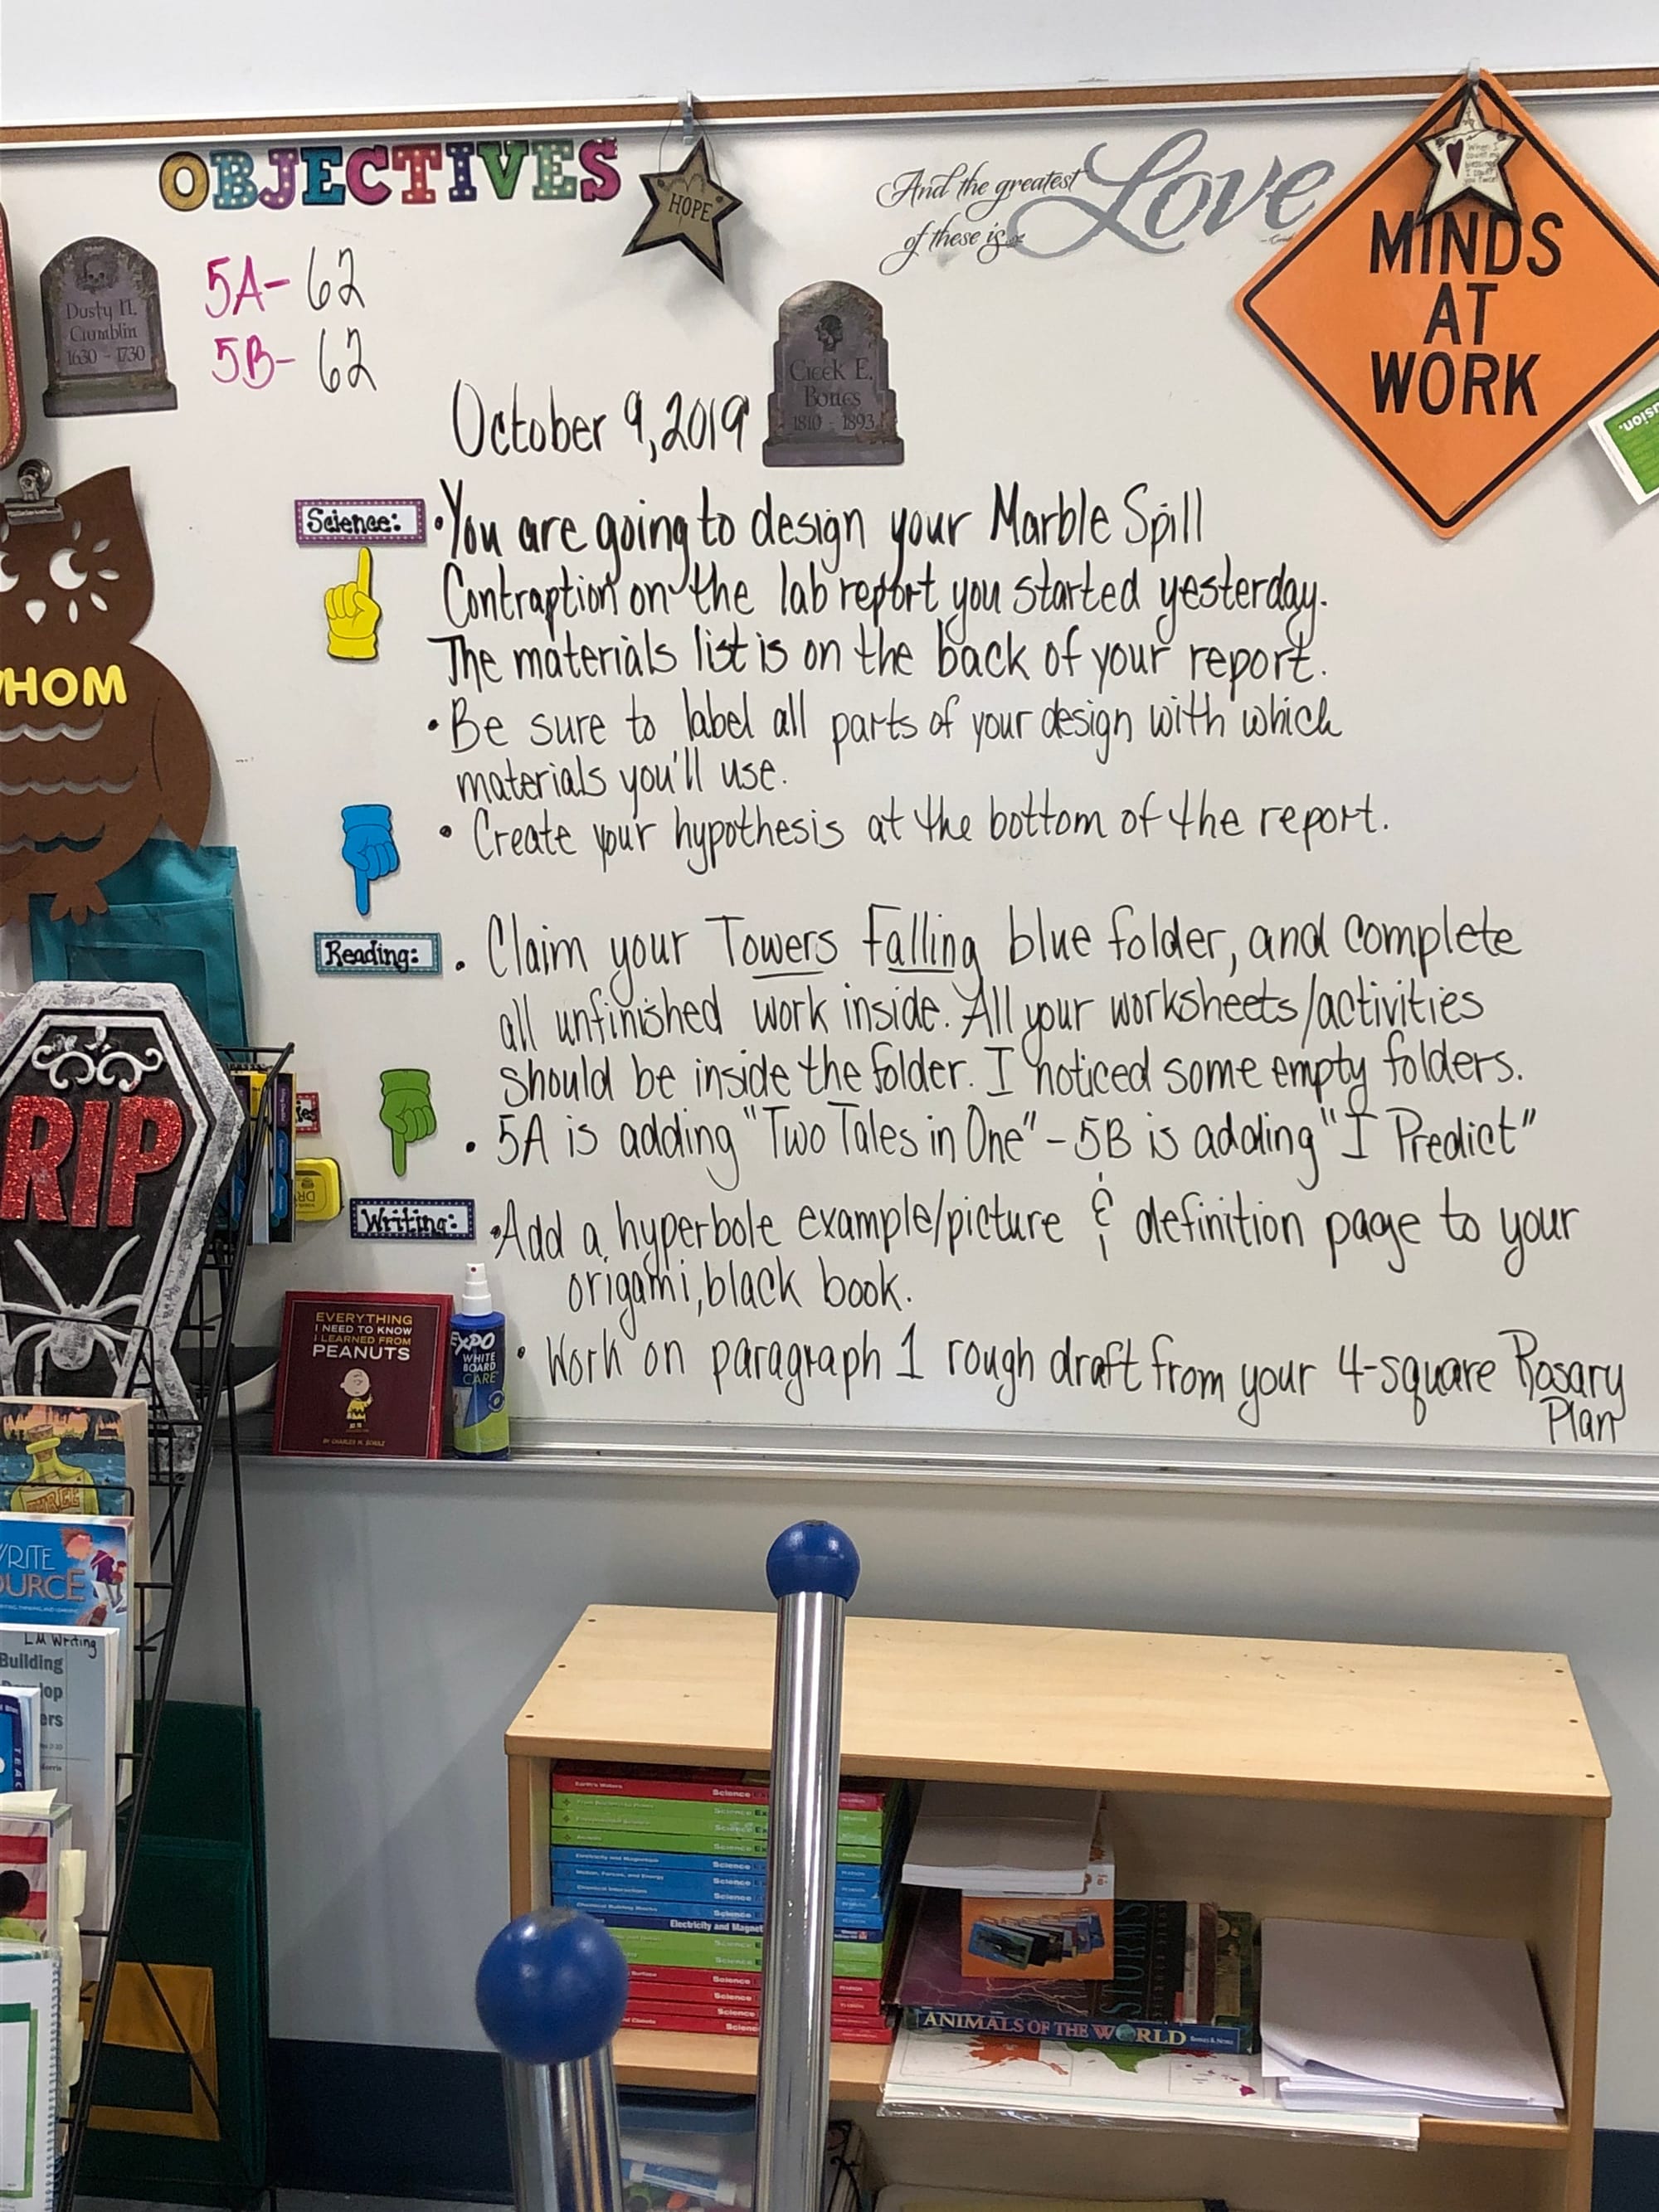 OBJECTIVES
HOPE
And the greatest
of these is
Love
MINDS
AT
WORK
Dusty N.
Crumblin
1630 - 1730
5A- 62
5B- 62
Creek E.
Bones
1810 - 1893
October 9, 2019
Science:
• You are going to design your Marble Spill
Contraption on the lab report you started yesterday.
The materials list is on the back of your report.
• Be sure to label all parts of your design with which
materials you'll use.
• Create your hypothesis at the bottom of the report.
Reading:
• Claim your Towers Falling blue folder, and complete
all unfinished work inside. All your worksheets/activities
should be inside the folder. I noticed some empty folders.
• 5A is adding "Two Tales in One" - 5B is adding "I Predict"
Writing:
• Add a hyperbole example/picture & definition page to your
origami, black book.
• Work on paragraph 1 rough draft from your 4-square Rosary
Plan
HOM
RIP
EVERYTHING
I NEED TO KNOW
I LEARNED FROM
PEANUTS
BY CHARLES M. SCHULZ
EXPO
WHITE
BOARD
CARE
THREE
RITE
OURCE
LM Writing
Building
lop
ers
Earth's Waters Science
Science
Science
Science
Electricity and Magnetism Science
Motion, Forces, and Energy Science
Chemical Interactions Science
Chemical Building Blocks Science
Electricity and Magnet
Science
Science
Science
Science
Science
STORMS
ANIMALS OF THE WORLD